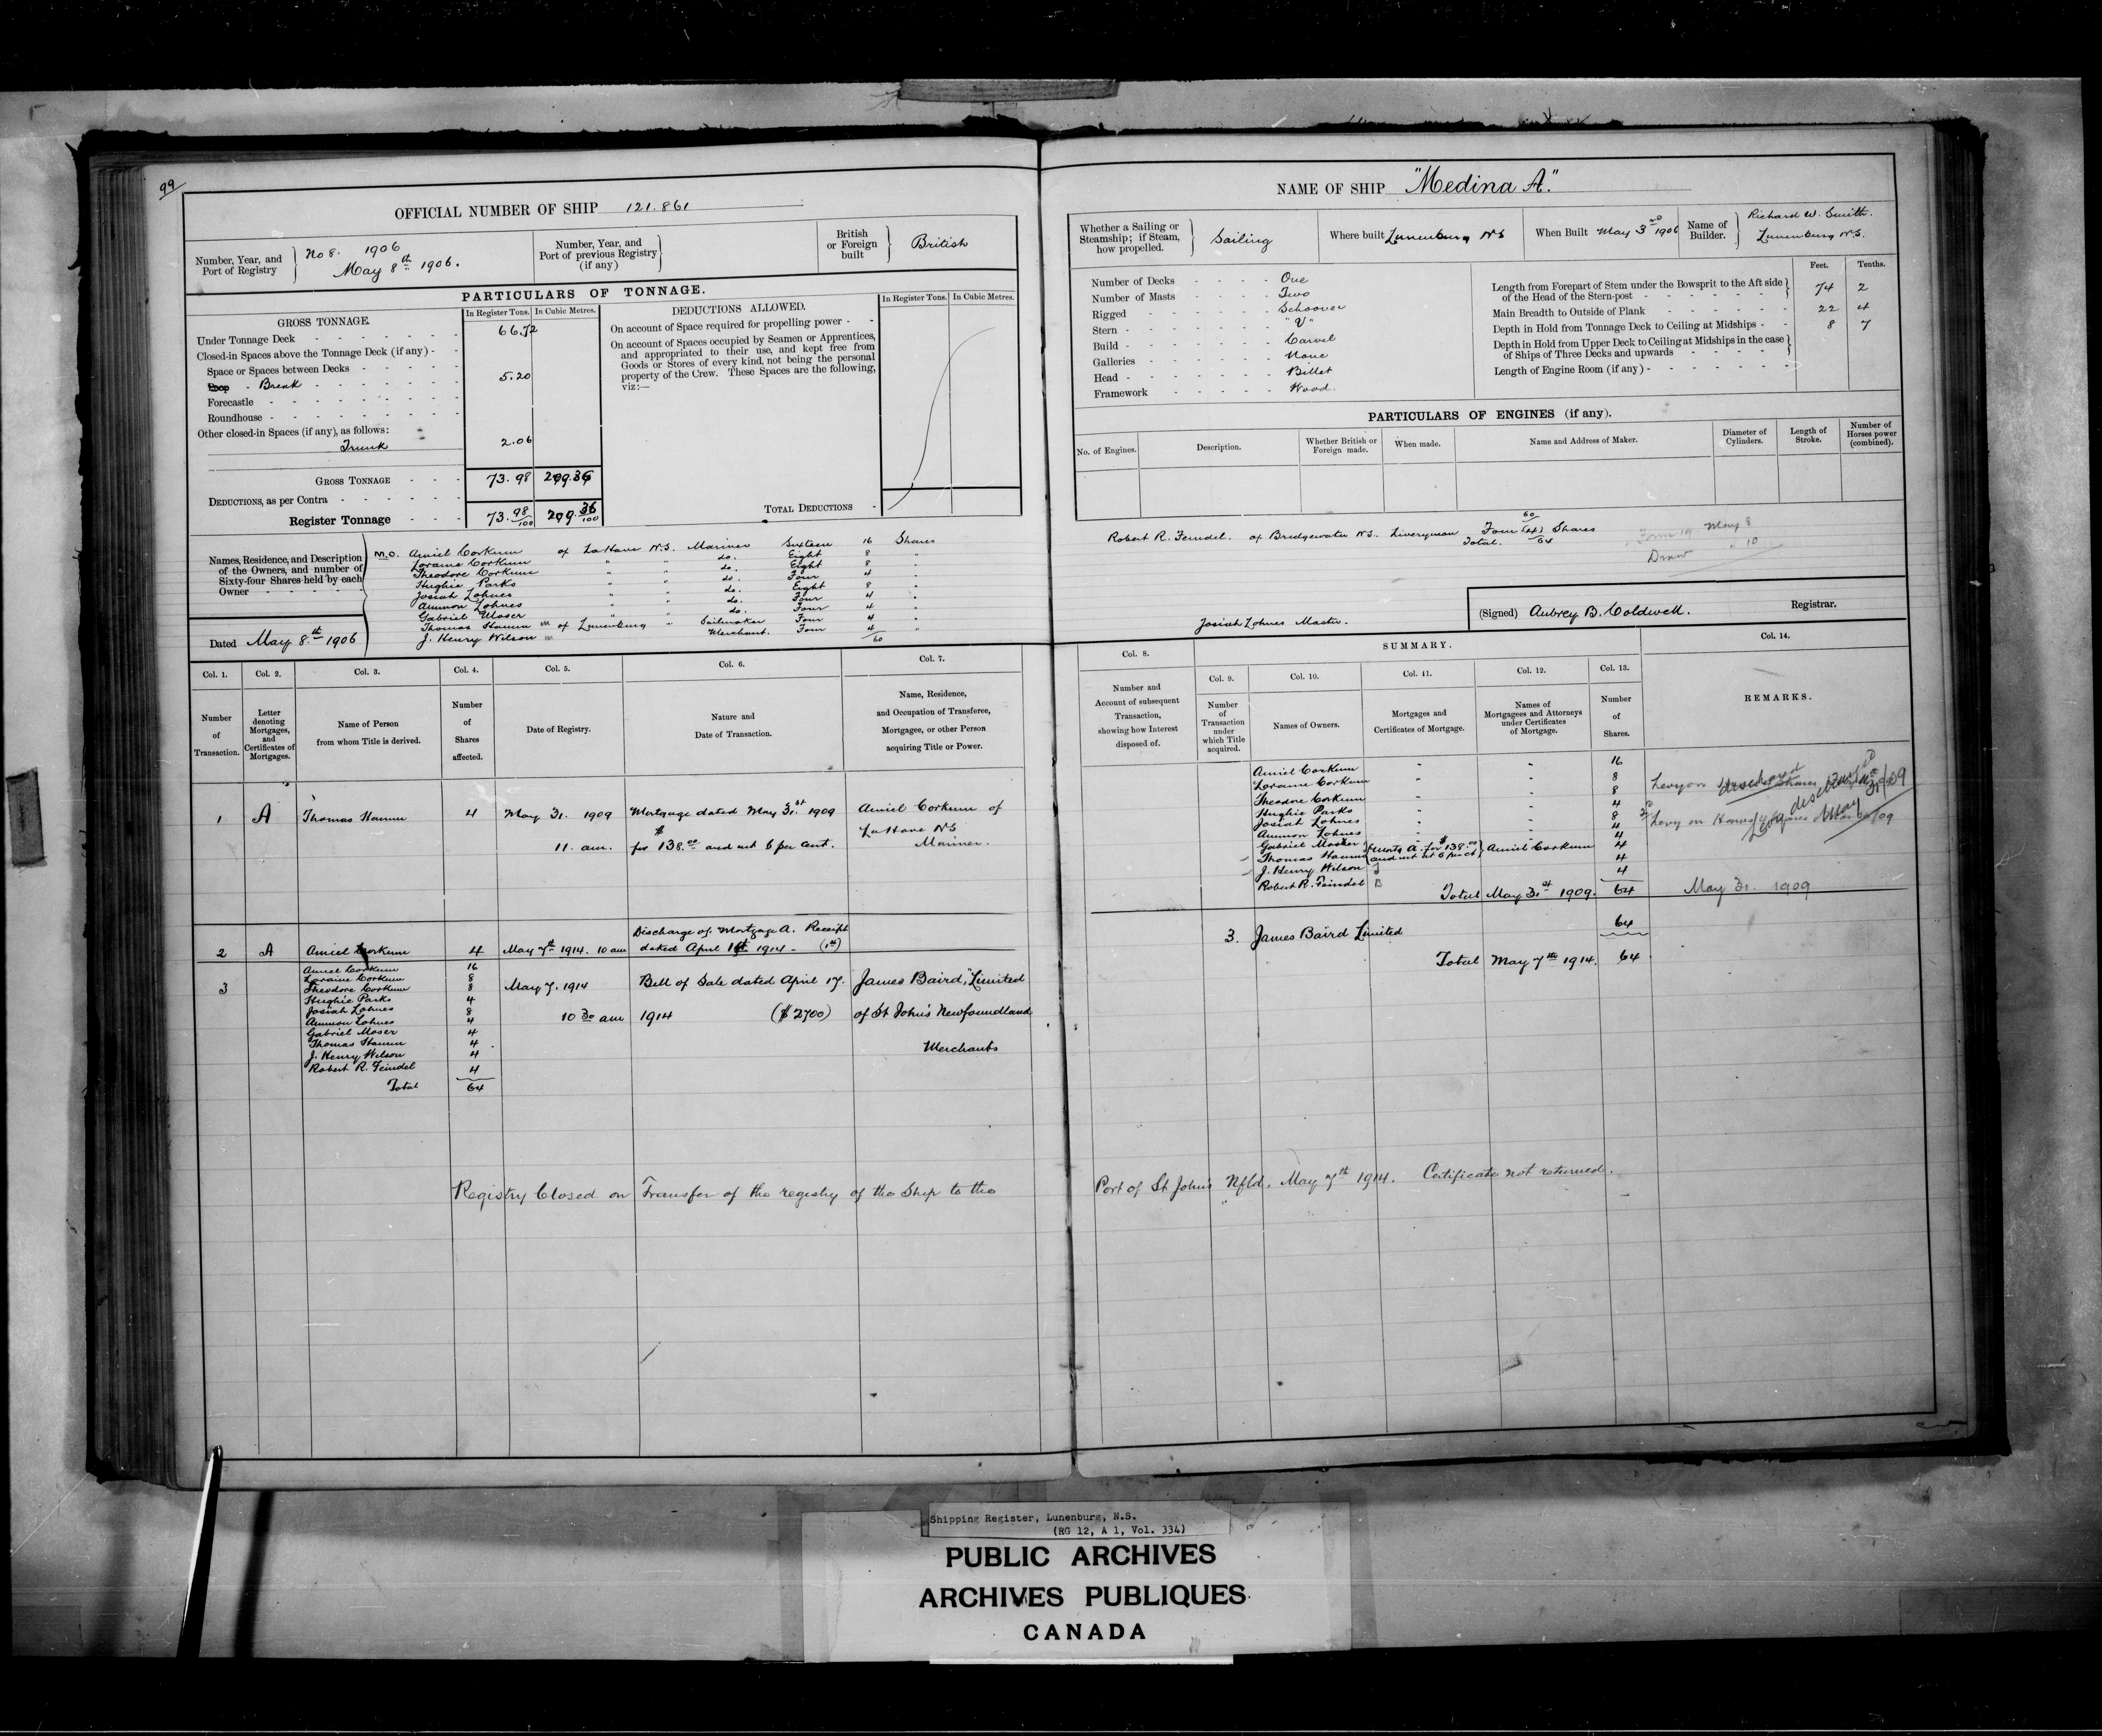 99
OFFICIAL NUMBER OF SHIP 121.861
Number, Year, and Port of Registry } No 8. 1906 May 8th 1906.
Number, Year, and Port of previous Registry (if any) }
British or Foreign built } British
PARTICULARS OF TONNAGE.
GROSS TONNAGE. In Register Tons. In Cubic Metres.
Under Tonnage Deck - 66.72
Closed-in Spaces above the Tonnage Deck (if any) -
Space or Spaces between Decks -
Poop - Break - 5.20
Forecastle -
Roundhouse -
Other closed-in Spaces (if any), as follows:
Trunk 2.06
GROSS TONNAGE - 73.98 209.36
DEDUCTIONS, as per Contra -
Register Tonnage - 73.98/100 209.36/100
DEDUCTIONS ALLOWED. In Register Tons. In Cubic Metres.
On account of Space required for propelling power -
On account of Spaces occupied by Seamen or Apprentices,
and appropriated to their use, and kept free from
Goods or Stores of every kind, not being the personal
property of the Crew. These Spaces are the following,
viz:—
TOTAL DEDUCTIONS -
Names, Residence, and Description
of the Owners, and number of
Sixty-four Shares held by each
Owner -
M.O. Amiel Corkum of LaHave N.S. Mariner Sixteen 16 Shares
Loraine Corkum " " do. Eight 8 "
Theodore Corkum " " do. Eight 8 "
Hughie Parks " " do. Four 4 "
Josiah Lohnes " " do. Eight 8 "
Ammon Lohnes " " do. Four 4 "
Gabriel Moser " " do. Four 4 "
Thomas Hamm of Lunenburg " Sailmaker Four 4 "
J. Henry Wilson Merchant. Four 4 "
60
Dated May 8th 1906
NAME OF SHIP "Medina A."
Whether a Sailing or Steamship; if Steam, how propelled. } Sailing
Where built Lunenburg NS
When Built May 3rd 1906
Name of Builder. } Richard W. Smith. Lunenburg N.S.
Number of Decks - One
Number of Masts - Two
Rigged - Schooner
Stern - "V"
Build - Carvel
Galleries - None
Head - Billet
Framework - Wood.
Feet. Tenths.
Length from Forepart of Stem under the Bowsprit to the Aft side
of the Head of the Stern-post - 74 2
Main Breadth to Outside of Plank - 22 4
Depth in Hold from Tonnage Deck to Ceiling at Midships - 8 7
Depth in Hold from Upper Deck to Ceiling at Midships in the case
of Ships of Three Decks and upwards -
Length of Engine Room (if any) -
PARTICULARS OF ENGINES (if any).
No. of Engines. Description. Whether British or Foreign made. When made. Name and Address of Maker. Diameter of Cylinders. Length of Stroke. Number of Horses power (combined).
60
Robert R. Feindel. of Bridgewater N.S. Liveryman Four (4) Shares
Total. 64
Form 19 May 8
Draw " 10
Josiah Lohnes Master.
(Signed) Aubrey B. Coldwell. Registrar.
Col. 1. Col. 2. Col. 3. Col. 4. Col. 5. Col. 6. Col. 7.
Number of Transaction.
Letter denoting Mortgages, and Certificates of Mortgages.
Name of Person from whom Title is derived.
Number of Shares affected.
Date of Registry.
Nature and Date of Transaction.
Name, Residence, and Occupation of Transferee, Mortgagee, or other Person acquiring Title or Power.
1 A Thomas Hamm 4 May 31. 1909 Mortgage dated May 31st 1909 Amiel Corkum of
LaHave NS
11. am. for $138.00 and int 6 per cent. Mariner.
Discharge of Mortgage A. Receipt
2 A Amiel Corkum 4 May 7th 1914. 10 am dated April 1914 - (1st)
Amiel Corkum 16
Loraine Corkum 8
3 Theodore Corkum 8 May 7. 1914 Bill of Sale dated April 17. James Baird, Limited
Hughie Parks 4
Josiah Lohnes 8
Ammon Lohnes 4 10 30 am 1914 ($2700) of St John's Newfoundland
Gabriel Moser 4
Thomas Hamm 4
J. Henry Wilson 4 Merchants
Robert R. Feindel 4
Total 64
Col. 8. SUMMARY. Col. 14.
Col. 9. Col. 10. Col. 11. Col. 12. Col. 13.
Number and Account of subsequent Transaction, showing how Interest disposed of.
Number of Transaction under which Title acquired.
Names of Owners.
Mortgages and Certificates of Mortgage.
Names of Mortgagees and Attorneys under Certificates of Mortgage.
Number of Shares.
REMARKS.
Amiel Corkum " " 16
Loraine Corkum " " 8
Theodore Corkum " " 8
Hughie Parks " " 4
Josiah Lohnes " " 8
Ammon Lohnes " " 4
Gabriel Mosher 4
Thomas Hamm } Mortg A. for $138.00 and int at 6 per ct } Amiel Corkum 4
J. Henry Wilson 4
Robert R. Feindel 4
Total May 31st 1909. 64 May 31. 1909
Levy on
Levy on Hamm's 4 Shares
discharged May 31/09
3. James Baird Limited 64
Total May 7th 1914. 64
Registry Closed on Transfer of the registry of the Ship to the Port of St John's Nfld, May 7th 1914. Certificate not returned.
Shipping Register, Lunenburg, N.S.
(RG 12, A 1, Vol. 334)
PUBLIC ARCHIVES
ARCHIVES PUBLIQUES
CANADA